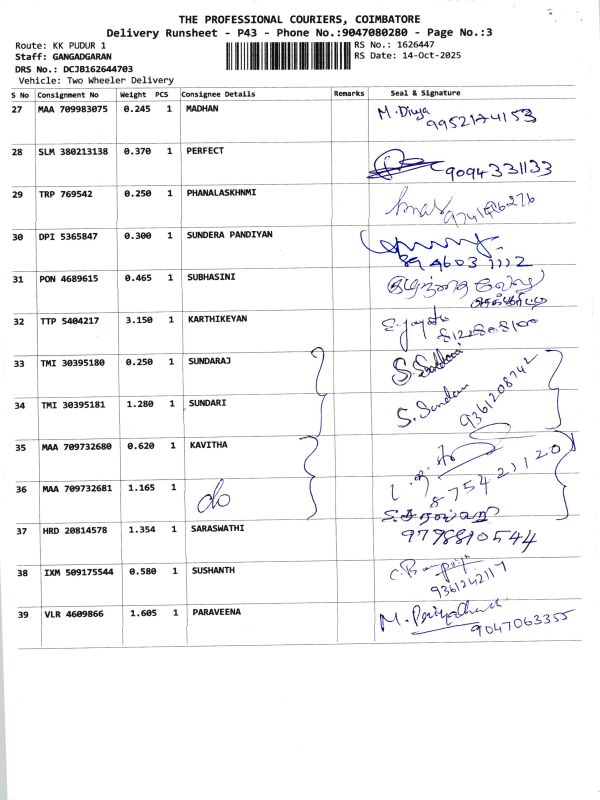 THE PROFESSIONAL COURIERS, COIMBATORE
Delivery Runsheet - P43 - Phone No.:9047080280 - Page No.:3
Route: KK PUDUR 1 RS No.: 1626447
Staff: GANGADGARAN RS Date: 14-Oct-2025
DRS No.: DCJB162644703
Vehicle: Two Wheeler Delivery
S No Consignment No Weight PCS Consignee Details Remarks Seal & Signature
27 MAA 709983075 0.245 1 MADHAN M. Divya
9952174153
28 SLM 380213138 0.370 1 PERFECT 9094331133
29 TRP 769542 0.250 1 PHANALASKHNMI
30 DPI 5365847 0.300 1 SUNDERA PANDIYAN
31 PON 4689615 0.465 1 SUBHASINI குழந்தை வேலு
32 TTP 5404217 3.150 1 KARTHIKEYAN
33 TMI 30395180 0.250 1 SUNDARAJ S.
34 TMI 30395181 1.280 1 SUNDARI S. Sundari
9361208742
35 MAA 709732680 0.620 1 KAVITHA
8754221120
36 MAA 709732681 1.165 1 do
37 HRD 20814578 1.354 1 SARASWATHI
9798810544
38 IXM 509175544 0.580 1 SUSHANTH
9361242117
39 VLR 4609866 1.605 1 PARAVEENA M.
9047063355